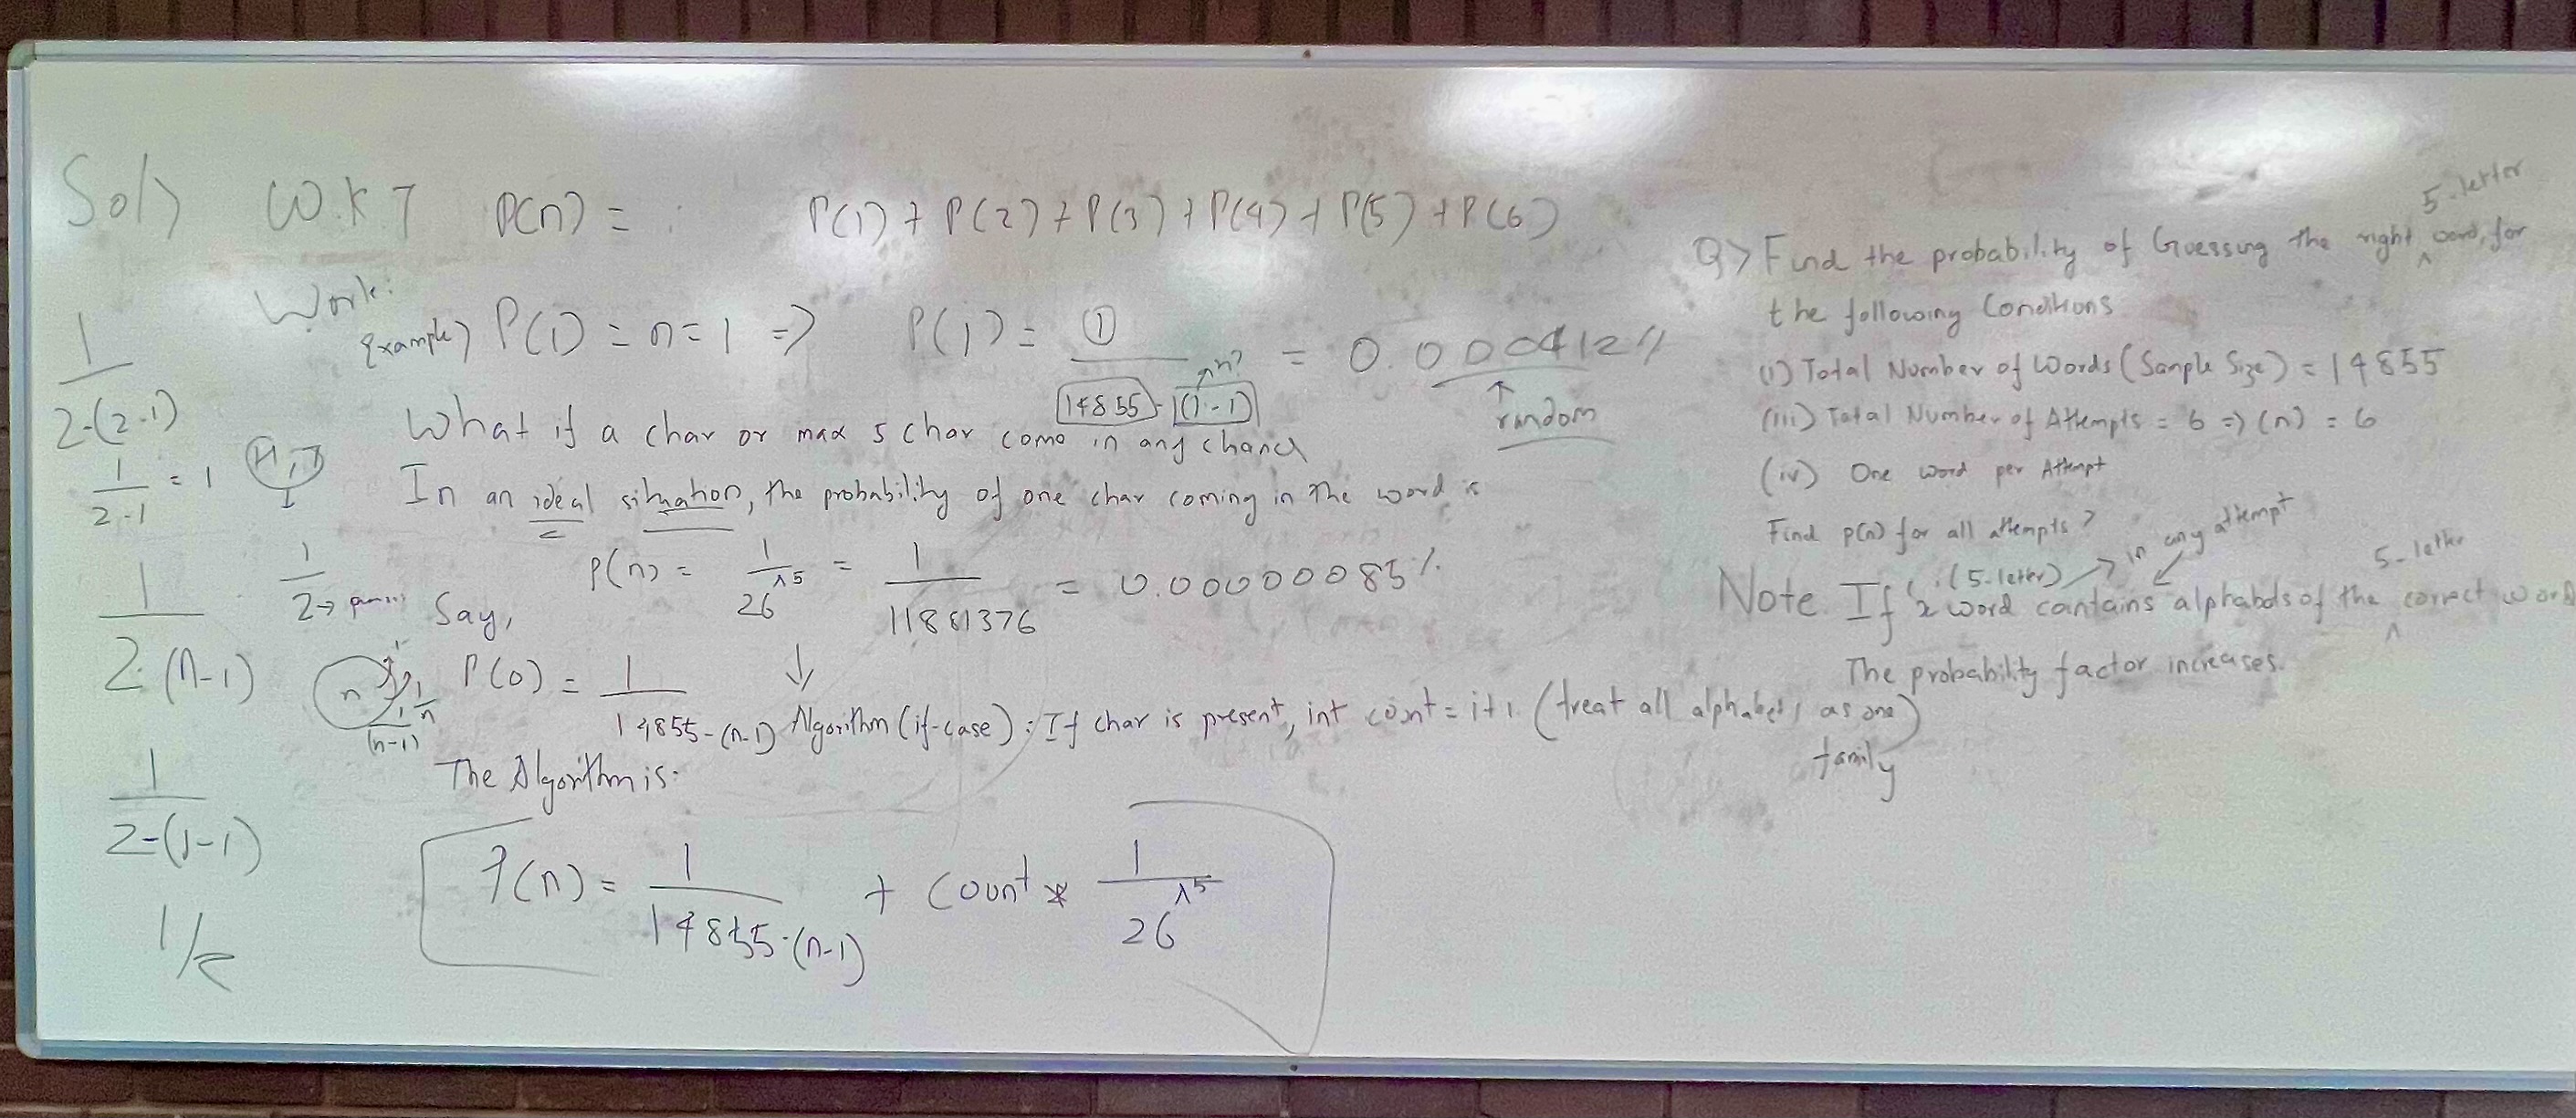 Sol> W.K.T P(n) = P(1) + P(2) + P(3) + P(4) + P(5) + P(6)
Work:
Example) P(1) = n=1 => P(1) = 1 / 14855 - (1-1) = 0.000412%
n?
random
What if a char or max 5 char come in any chance
In an ideal situation, the probability of one char coming in the word is
P(n) = 1 / 26^5 = 1 / 11881376 = 0.000000085%
Say,
P(0) = 1 / 14855-(n-1)
Algorithm (if-case): If char is present, int count = i+1. (treat all alphabets as one)
family
The Algorithm is.
P(n) = 1 / 14855-(n-1) + Count * 1 / 26^5
1 / 2-(2-1)
1 / 2-1 = 1
H, T
1
1 / 2
1 / 2-(n-1)
n
1 / n
1 / (n-1)
1 / 2-(1-1)
1/2
Q> Find the probability of Guessing the right ^ 5-letter word, for
the following Conditions
(i) Total Number of Words (Sample Size) = 14855
(iii) Total Number of Attempts = 6 => (n) = 6
(iv) One word per Attempt
Find p(n) for all attempts?
in any attempt
Note. If 'x' (5-letter) word contains alphabets of the ^ 5-letter correct word
The probability factor increases.